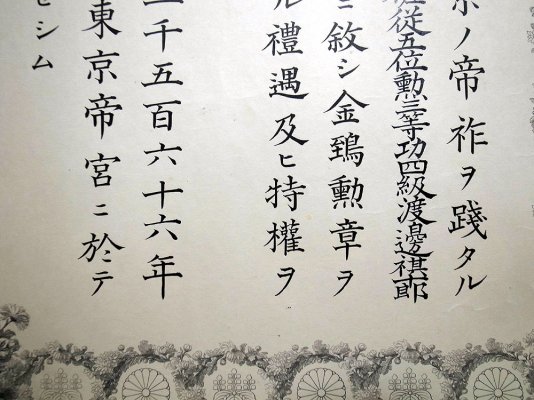 ノ帝祚ヲ踐タル
従五位勲三等功四級渡邊祺郎
ニ敘シ金鵄勲章ヲ
ル禮遇及ヒ特權ヲ
千五百六十六年
東京帝宮ニ於テ
セシム